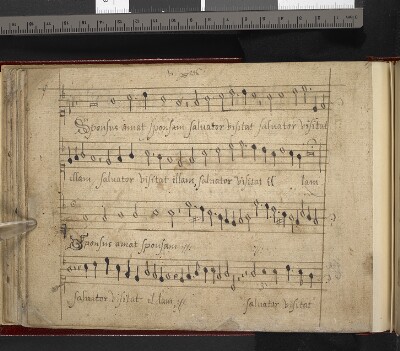 Sponsus amat sponsam salvator visitat salvator visitat
illam, salvator visitat illam, salvator visitat il lam
Sponsus amat sponsam
salvator visitat il lam, salvator visitat